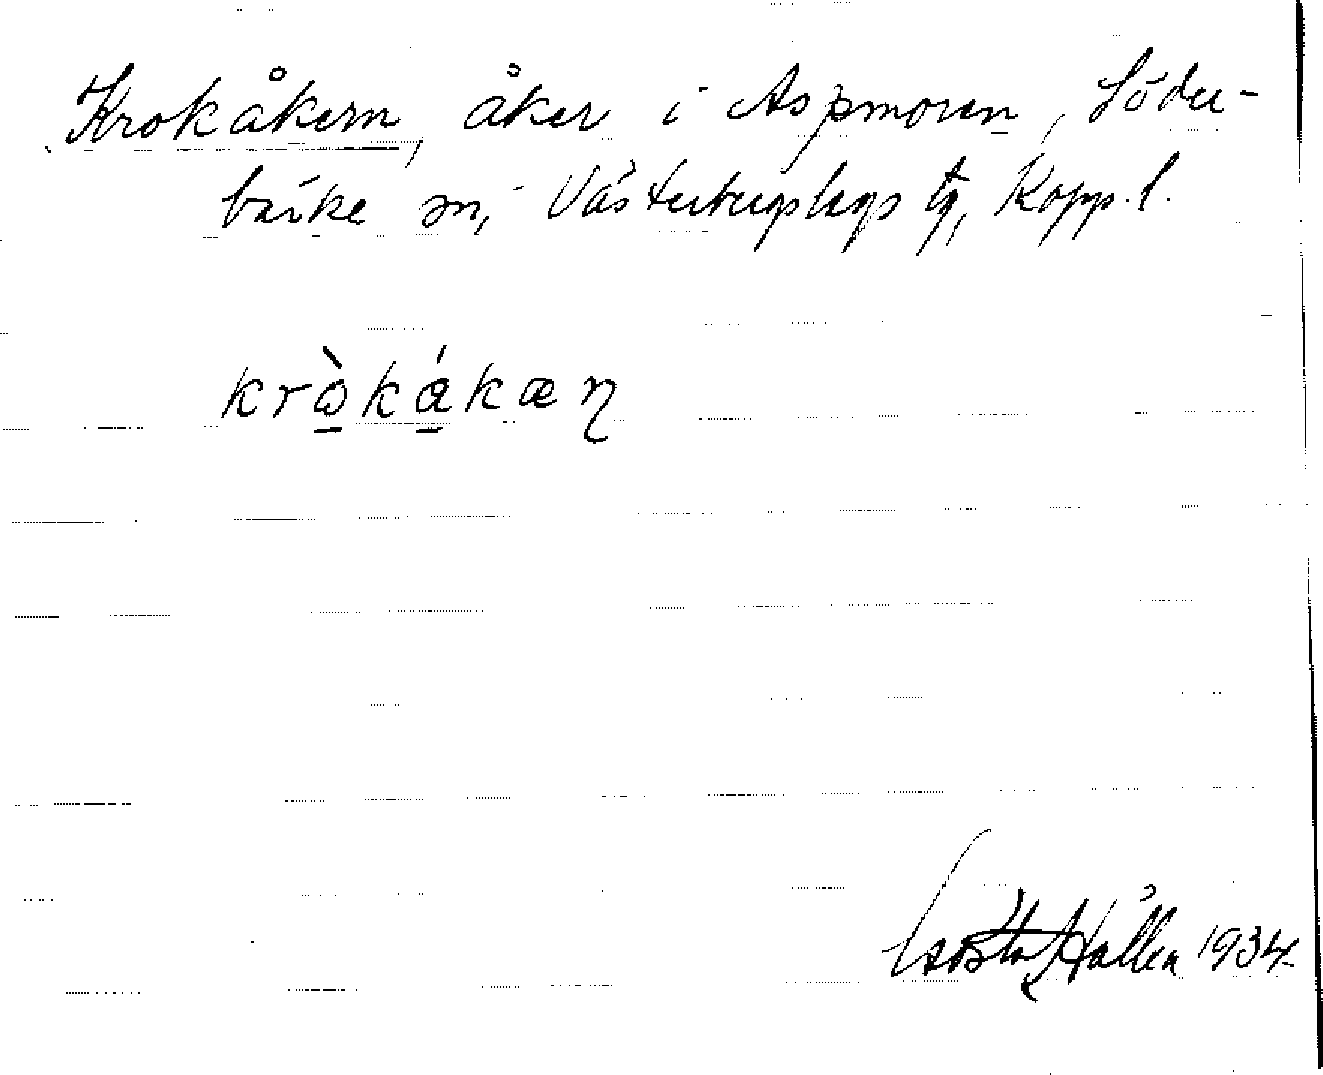 Krokåkern, åker i Aspmoren, Söder-
bärke sn, Västerbergslags tg, Kopp. l.
krὼkákæn
Gösta Hållen 1934